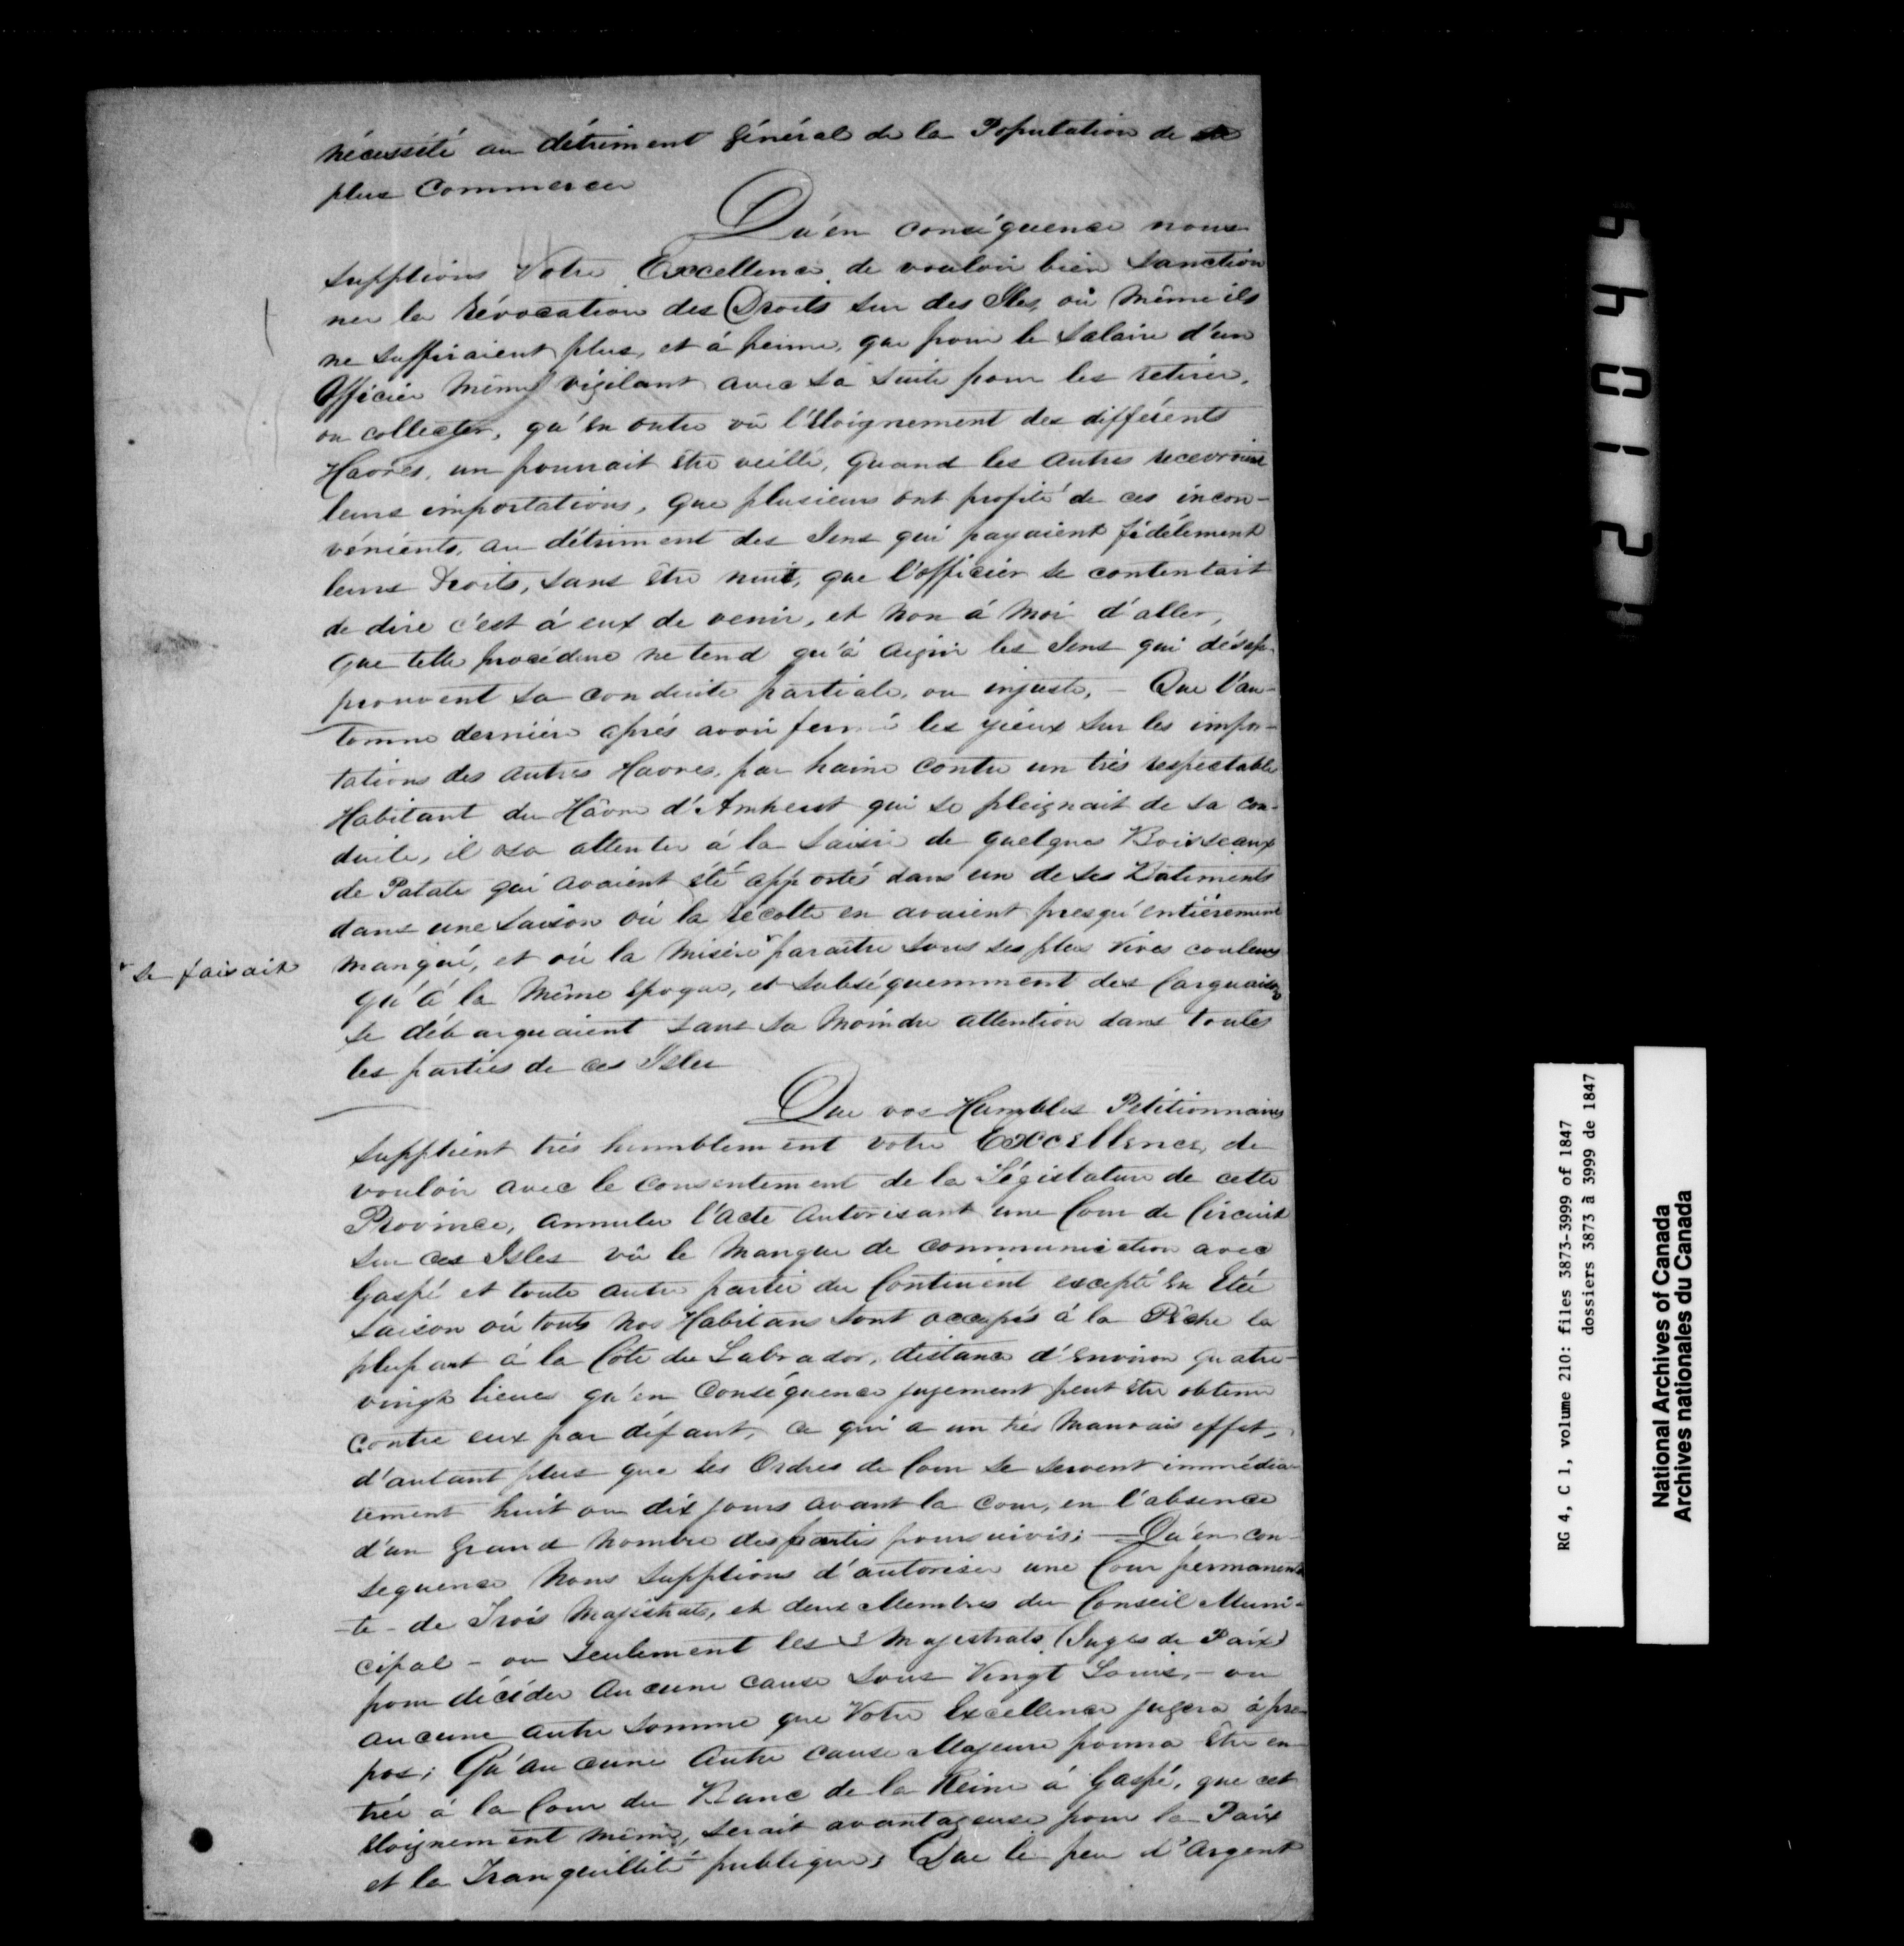 nécessité au détriment général de la Population de
plus Commercer
Qu'en conséquence nous
supplions Votre Excellence de vouloir bien Sanction
ner la Révocation des Droits sur des Iles, où même ils
ne suffiraient plus, et à peine, que pour le Salaire d'un
Officier même vigilant avec sa suite pour les retirer,
ou collecter, qu'en outre vû l'Eloignement des différents
Havres, un pourrait être veillé, quand les autres recevraient
leurs importations, que plusieurs ont profité de ces incon-
vénients, au détriment des Gens qui payaient fidélement
leurs Droits, sans être nuit, que l'officier se contentait
de dire c'est à eux de venir, et non à moi d'aller,
Que telle procédure ne tend qu'à aigrir les Gens qui désap-
prouvent sa conduite partiale, ou injuste, - Que l'au-
tomne dernière après avoir fermé les yieux sur les impor-
tations des autres Havres, par haine contre un très respectable
Habitant du Hâvre d'Amherst qui se pleignait de sa con-
duite, il osa attenter à la Saisie de quelques Boisseaux
de Patate qui avaient été apportés dans un de ses Batiments
dans une Saison où la récolte en avaient presqu'entièrement
manqué, et où la misère paraître sous ses plus vives couleurs
se faisait
qu'à la même époque, et subséquemment des Carguaisons
se débarquaient sans sa moindre attention dans toutes
les parties de ces Isles
Que vos Humbles Petitionnaires
supplient très humblement votre Excellence, de
vouloir avec le consentement de la Législature de cette
Province, annuler l'acte autorisant une Cour de Circuit
sur ces Isles vû le manque de communication avec
Gaspé et toute autre partie du Continent excepté en Eté
Saison où touts nos Habitans sont occupés à la Pêche la
plupart à la Côte du Labrador, distance d'environ quatre-
vingt lieues qu'en conséquence jugement peut être obtenu
contre eux par défaut, ce qui a un très mauvais effet,
d'autant plus que les Ordres de Cour se servent immédia-
tement huit ou dix jours avant la Cour, en l'absence
d'un grand nombre des partis poursuivis; - Qu'en con-
sequence nous supplions d'autoriser une Cour permanen
-te- de Trois Majistrats, et deux Membres du Conseil Muni-
cipal - ou seulement les 3 Majistrats (Juges de Paix)
pour décider aucune cause sous Vingt Louis, - ou
aucune autre somme que Votre Excellence jugera à pro-
pos; Qu'aucune autre cause Majeure pourra être en-
trée à la Cour du Banc de la Reine à Gaspé, que cet
Eloignement même, serait avantageuse pour la Paix
et la Tranquillité publique; Que le peu d'Argent
54012
RG 4, C 1, volume 210: files 3873-3999 of 1847
dossiers 3873 à 3999 de 1847
National Archives of Canada
Archives nationales du Canada